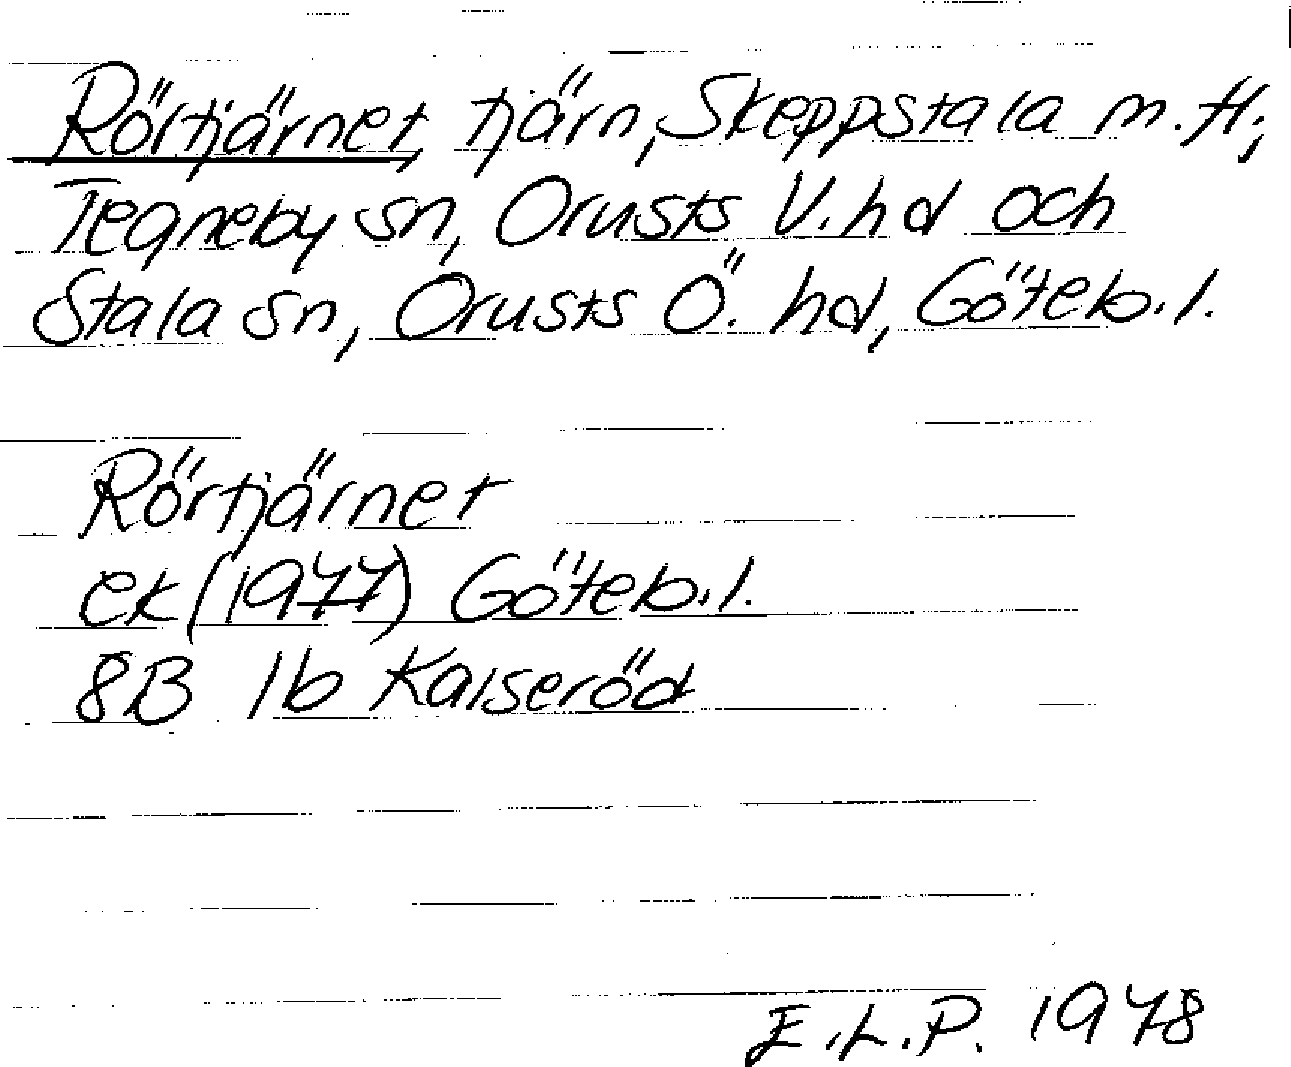 Rörtjärnet, tjärn, Skeppstala m.fl.,
Tegneby sn, Orusts V. hd och
Stala sn, Orusts Ö. hd, Göteb. l.
Rörtjärnet
ek (1977) Göteb. l.
8B 1b Kaiseröd
E.L.P. 1978